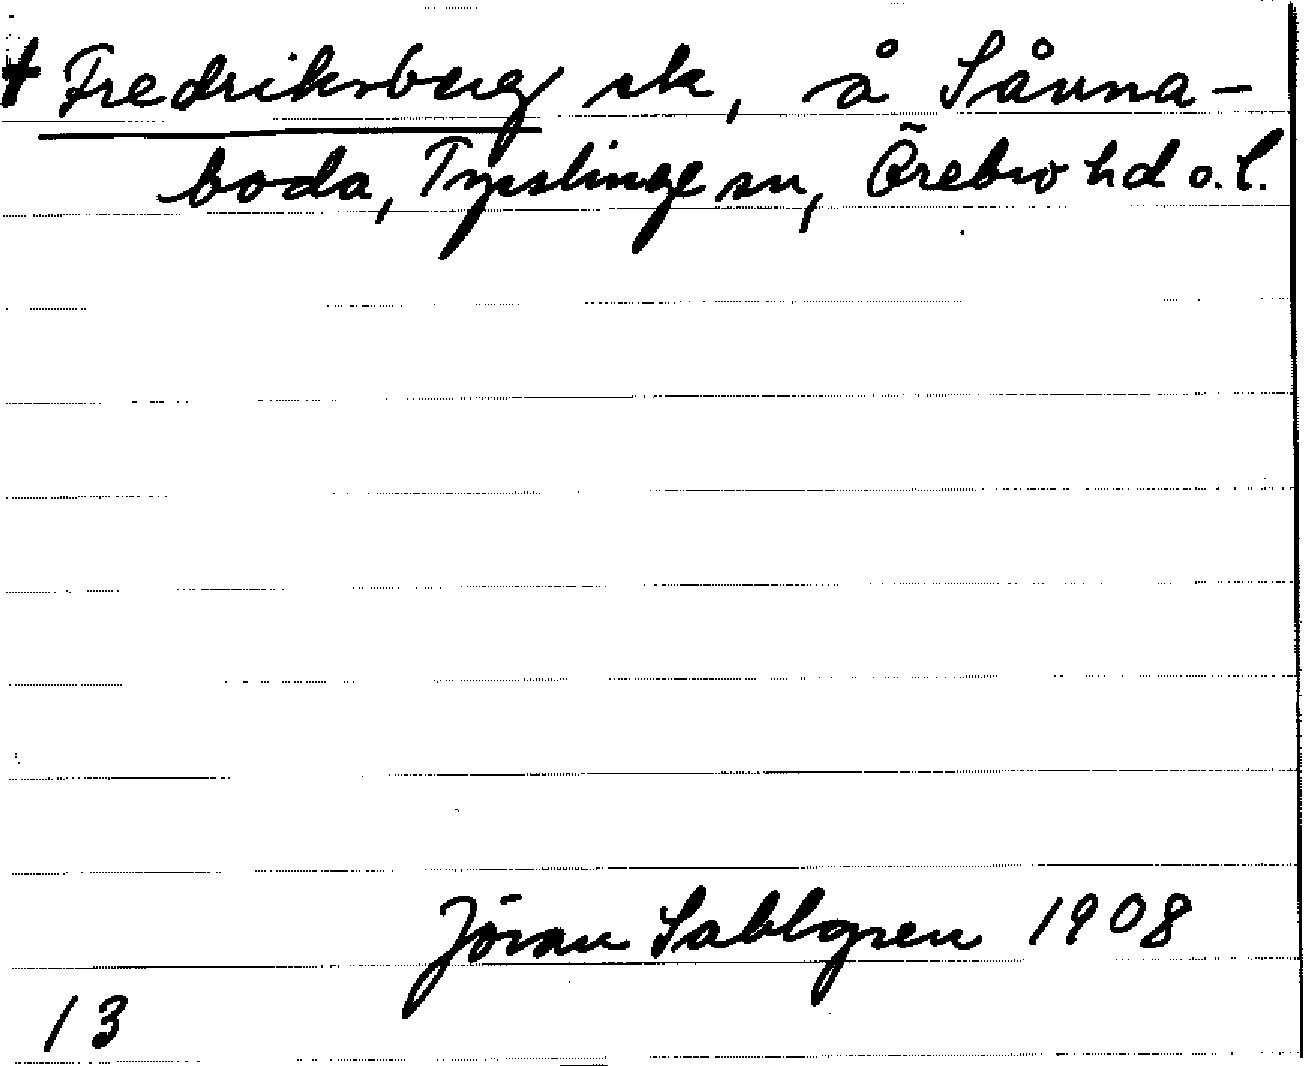 † Fredriksberg sk, å Sånna-
boda, Tysslinge sn, Örebro hd o. l.
Jöran Sahlgren 1908
13